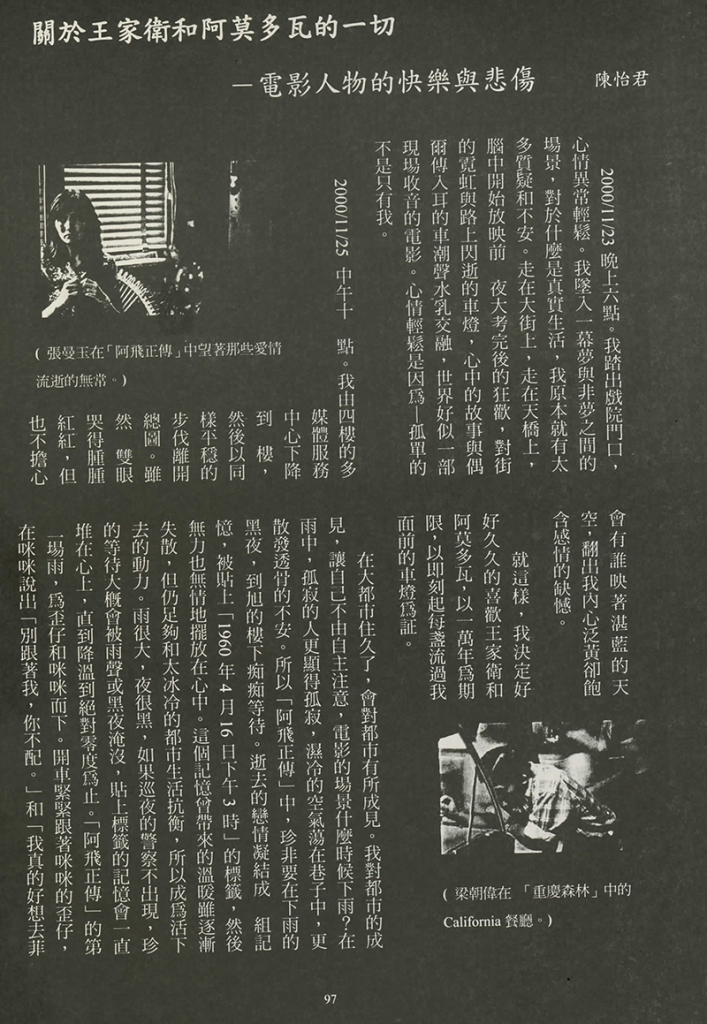 關於王家衛和阿莫多瓦的一切
—電影人物的快樂與悲傷
陳怡君
2000/11/23 晚上六點。我踏出戲院門口，
心情異常輕鬆。我墜入一幕夢與非夢之間的
場景，對於什麼是真實生活，我原本就有太
多質疑和不安。走在大街上，走在天橋上，
腦中開始放映前 夜大考完後的狂歡，對街
的霓虹與路上閃逝的車燈，心中的故事與偶
爾傳入耳的車潮聲水乳交融，世界好似一部
現場收音的電影。心情輕鬆是因為—孤單的
不是只有我。
2000/11/25 中午十 點。我由四樓的多
媒體服務
中心下降
到 樓，
然後以同
樣平穩的
步伐離開
總圖。雖
然 雙眼
哭得腫腫
紅紅，但
也不擔心
(張曼玉在「阿飛正傳」中望著那些愛情
流逝的無常。)
會有誰映著湛藍的天
空，翻出我內心泛黃卻飽
含感情的缺憾。
就這樣，我決定好
好久久的喜歡王家衛和
阿莫多瓦，以一萬年為期
限，以即刻起每盞流過我
面前的車燈為証。
(梁朝偉在 「重慶森林」中的
California 餐廳。)
在大都市住久了，會對都市有所成見。我對都市的成
見，讓自己不由自主注意，電影的場景什麼時候下雨？在
雨中，孤寂的人更顯得孤寂，濕冷的空氣蕩在巷子中，更
散發透骨的不安。所以「阿飛正傳」中，珍非要在下雨的
黑夜，到旭的樓下痴痴等待。逝去的戀情凝結成 組記
憶，被貼上「1960 年 4 月 16 日下午 3 時」的標籤，然後
無力也無情地擺放在心中。這個記憶曾帶來的溫暖雖逐漸
失散，但仍足夠和太冰冷的都市生活抗衡，所以成為活下
去的動力。雨很大，夜很黑，如果巡夜的警察不出現，珍
的等待大概會被雨聲或黑夜淹沒，貼上標籤的記憶會一直
堆在心上，直到降溫到絕對零度為止。「阿飛正傳」的第
一場雨，為歪仔和咪咪而下。開車緊緊跟著咪咪的歪仔，
在咪咪說出「別跟著我，你不配。」和「我真的好想去菲
97